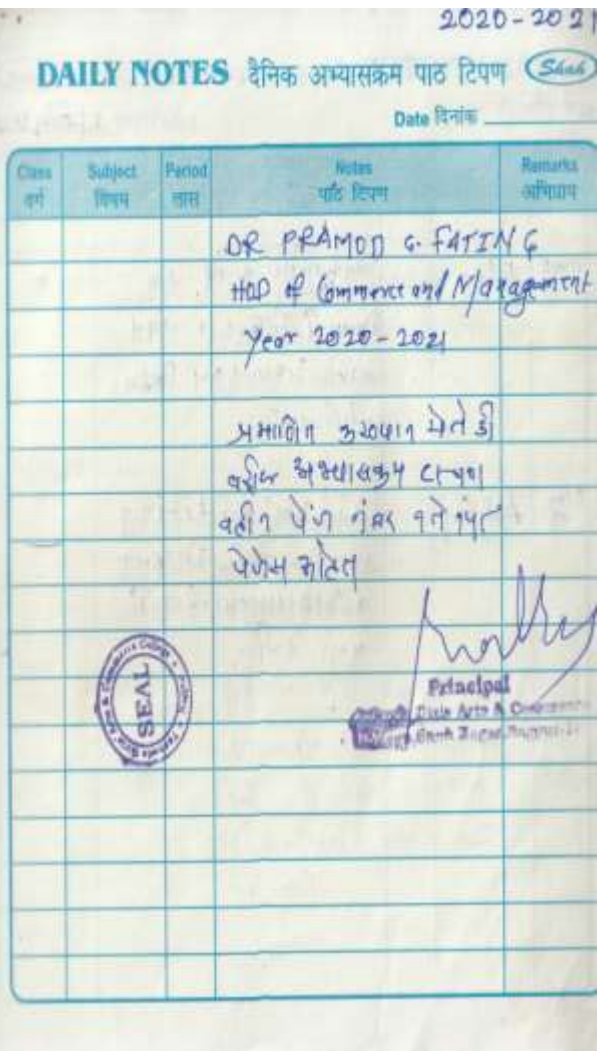 2020-2021
DAILY NOTES दैनिक अभ्यासक्रम पाठ टिपण Shah
Date दिनांक
Class Subject Period Notes Remarks
वर्ग विषय तास पाठ टिपण अभिप्राय
DR PRAMOD G. FATING
HOD of Commerce and Management
Year 2020-2021
प्रमाणित करण्यात येते की
वरील अभ्यासक्रम टाचण
वहीत पेज नंबर १ ते
पेजेस आहेत
SEAL
Principal
Arts & Commerce